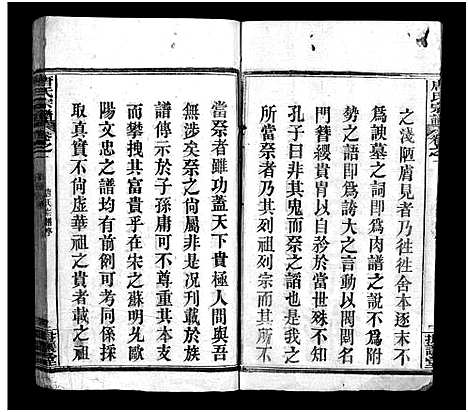 唐氏宗譜
卷之一
之淺陋膚見者乃往往舍本逐末不
爲諛墓之詞即爲肉譜之說不爲附
勢之語即爲誇大之言動以累代高
門簪纓貴胄以自矜於當世殊不知
孔子曰非其鬼而祭之諂也鬼之不
當祭者乃其列祖列宗而其所不
當祭者雖功蓋天下貴極人間與吾
無涉矣祭之尙屬非是况刊載於族
譜傳示於子孫庸可不尊重其本支
而攀拽其富貴乎在宋之蘇明允歐
陽文忠之譜均有前例可考同係採
取眞實不尙虛華祖之貴者載之祖
唐氏宗譜
卷之一